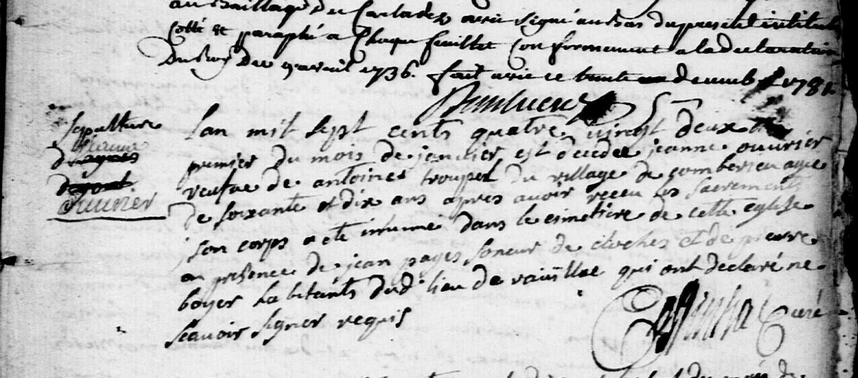 au Baillage du Carladez avic signé au Bas du present intitulé
Cotté et paraphé a Chaque feuillet Conformement a la declaration
Du Roy du 9 avril 1736. fait a vic ce trente decemb. 1781.
Sepulture
jeanne
ouvrier
Lan mil sept cents quatre vingt deux et le
premier du mois de janvier, est decedee jeanne ouvrier
veufve de antoine trouper du village de comberieu agee
de soixante et dix ans apres avoir receu les sacrements
son corps a eté inhumé dans le cimetiere de cette eglise
en presence de jean pages soneur de cloches et de pierre
boyer habitants dud. lieu de rauilhac qui ont declaré ne
scavoir signer requis
Curé